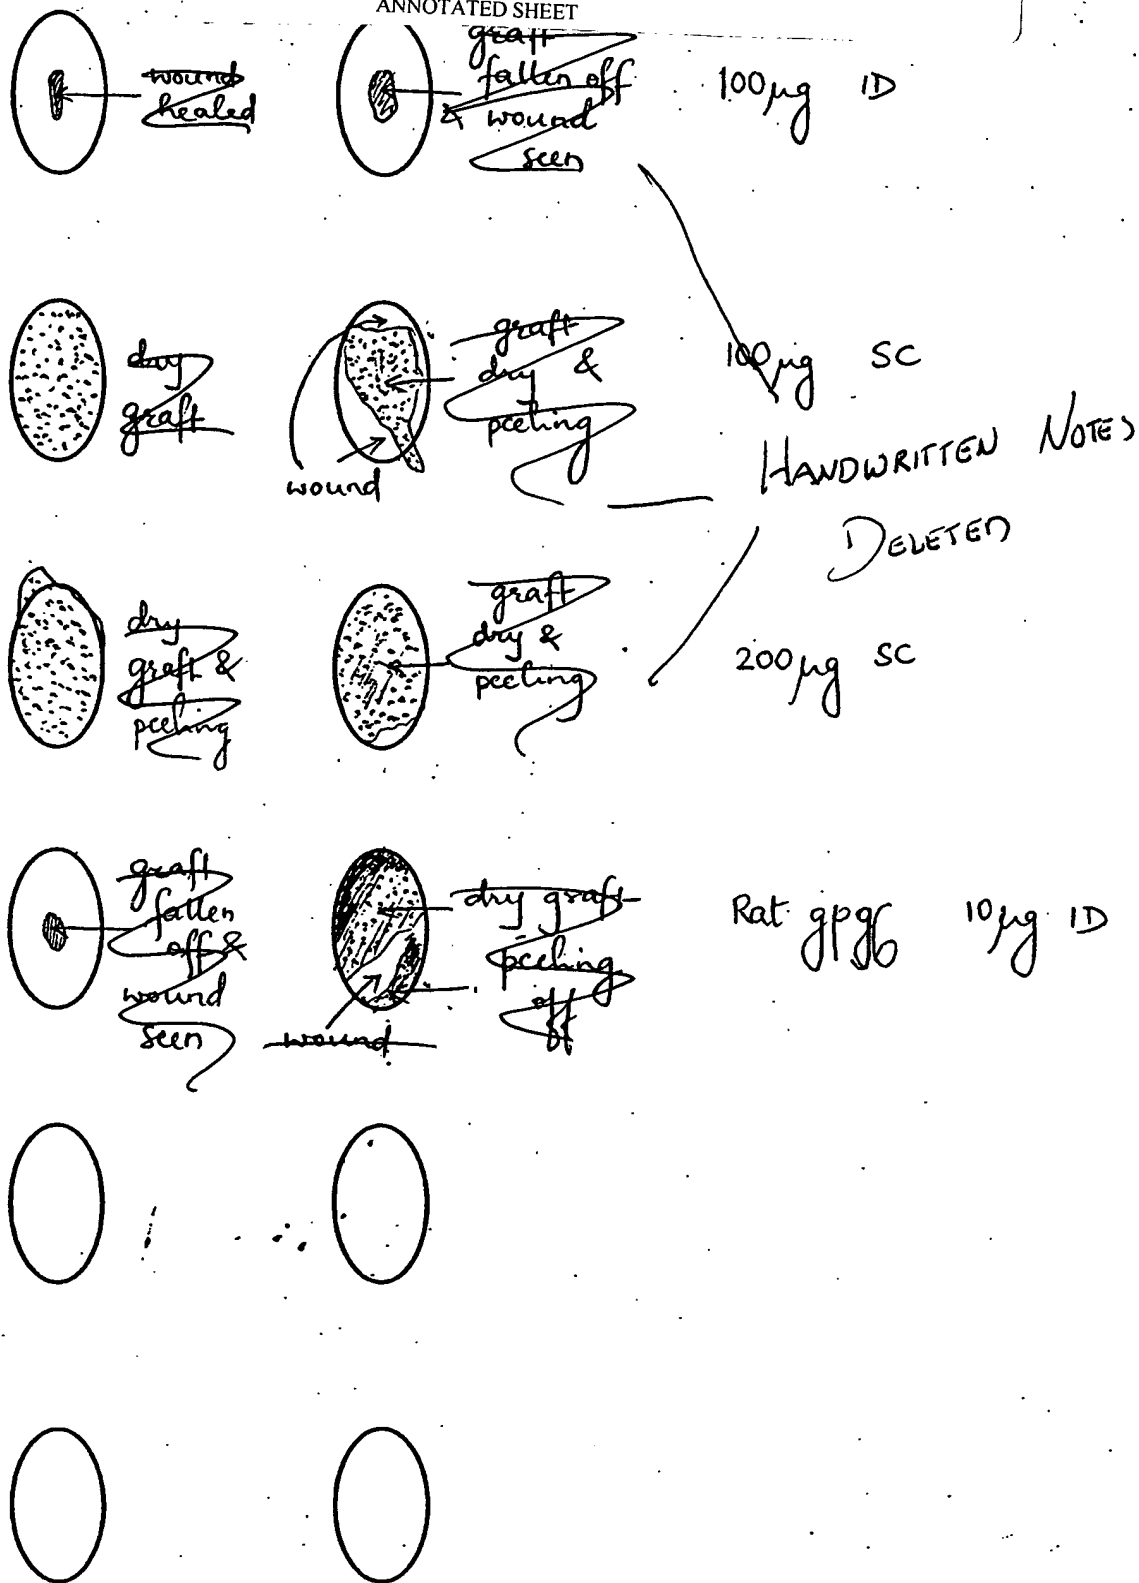 ANNOTATED SHEET
wound
healed
graft
fallen off
& wound
seen
100µg ID
dry
graft
graft
dry &
peeling
wound
100µg SC
HANDWRITTEN NOTES
DELETED
dry
graft &
peeling
graft
dry &
peeling
200µg SC
graft
fallen
off &
wound
seen
dry graft
peeling
off
wound
Rat gpg6 10µg ID